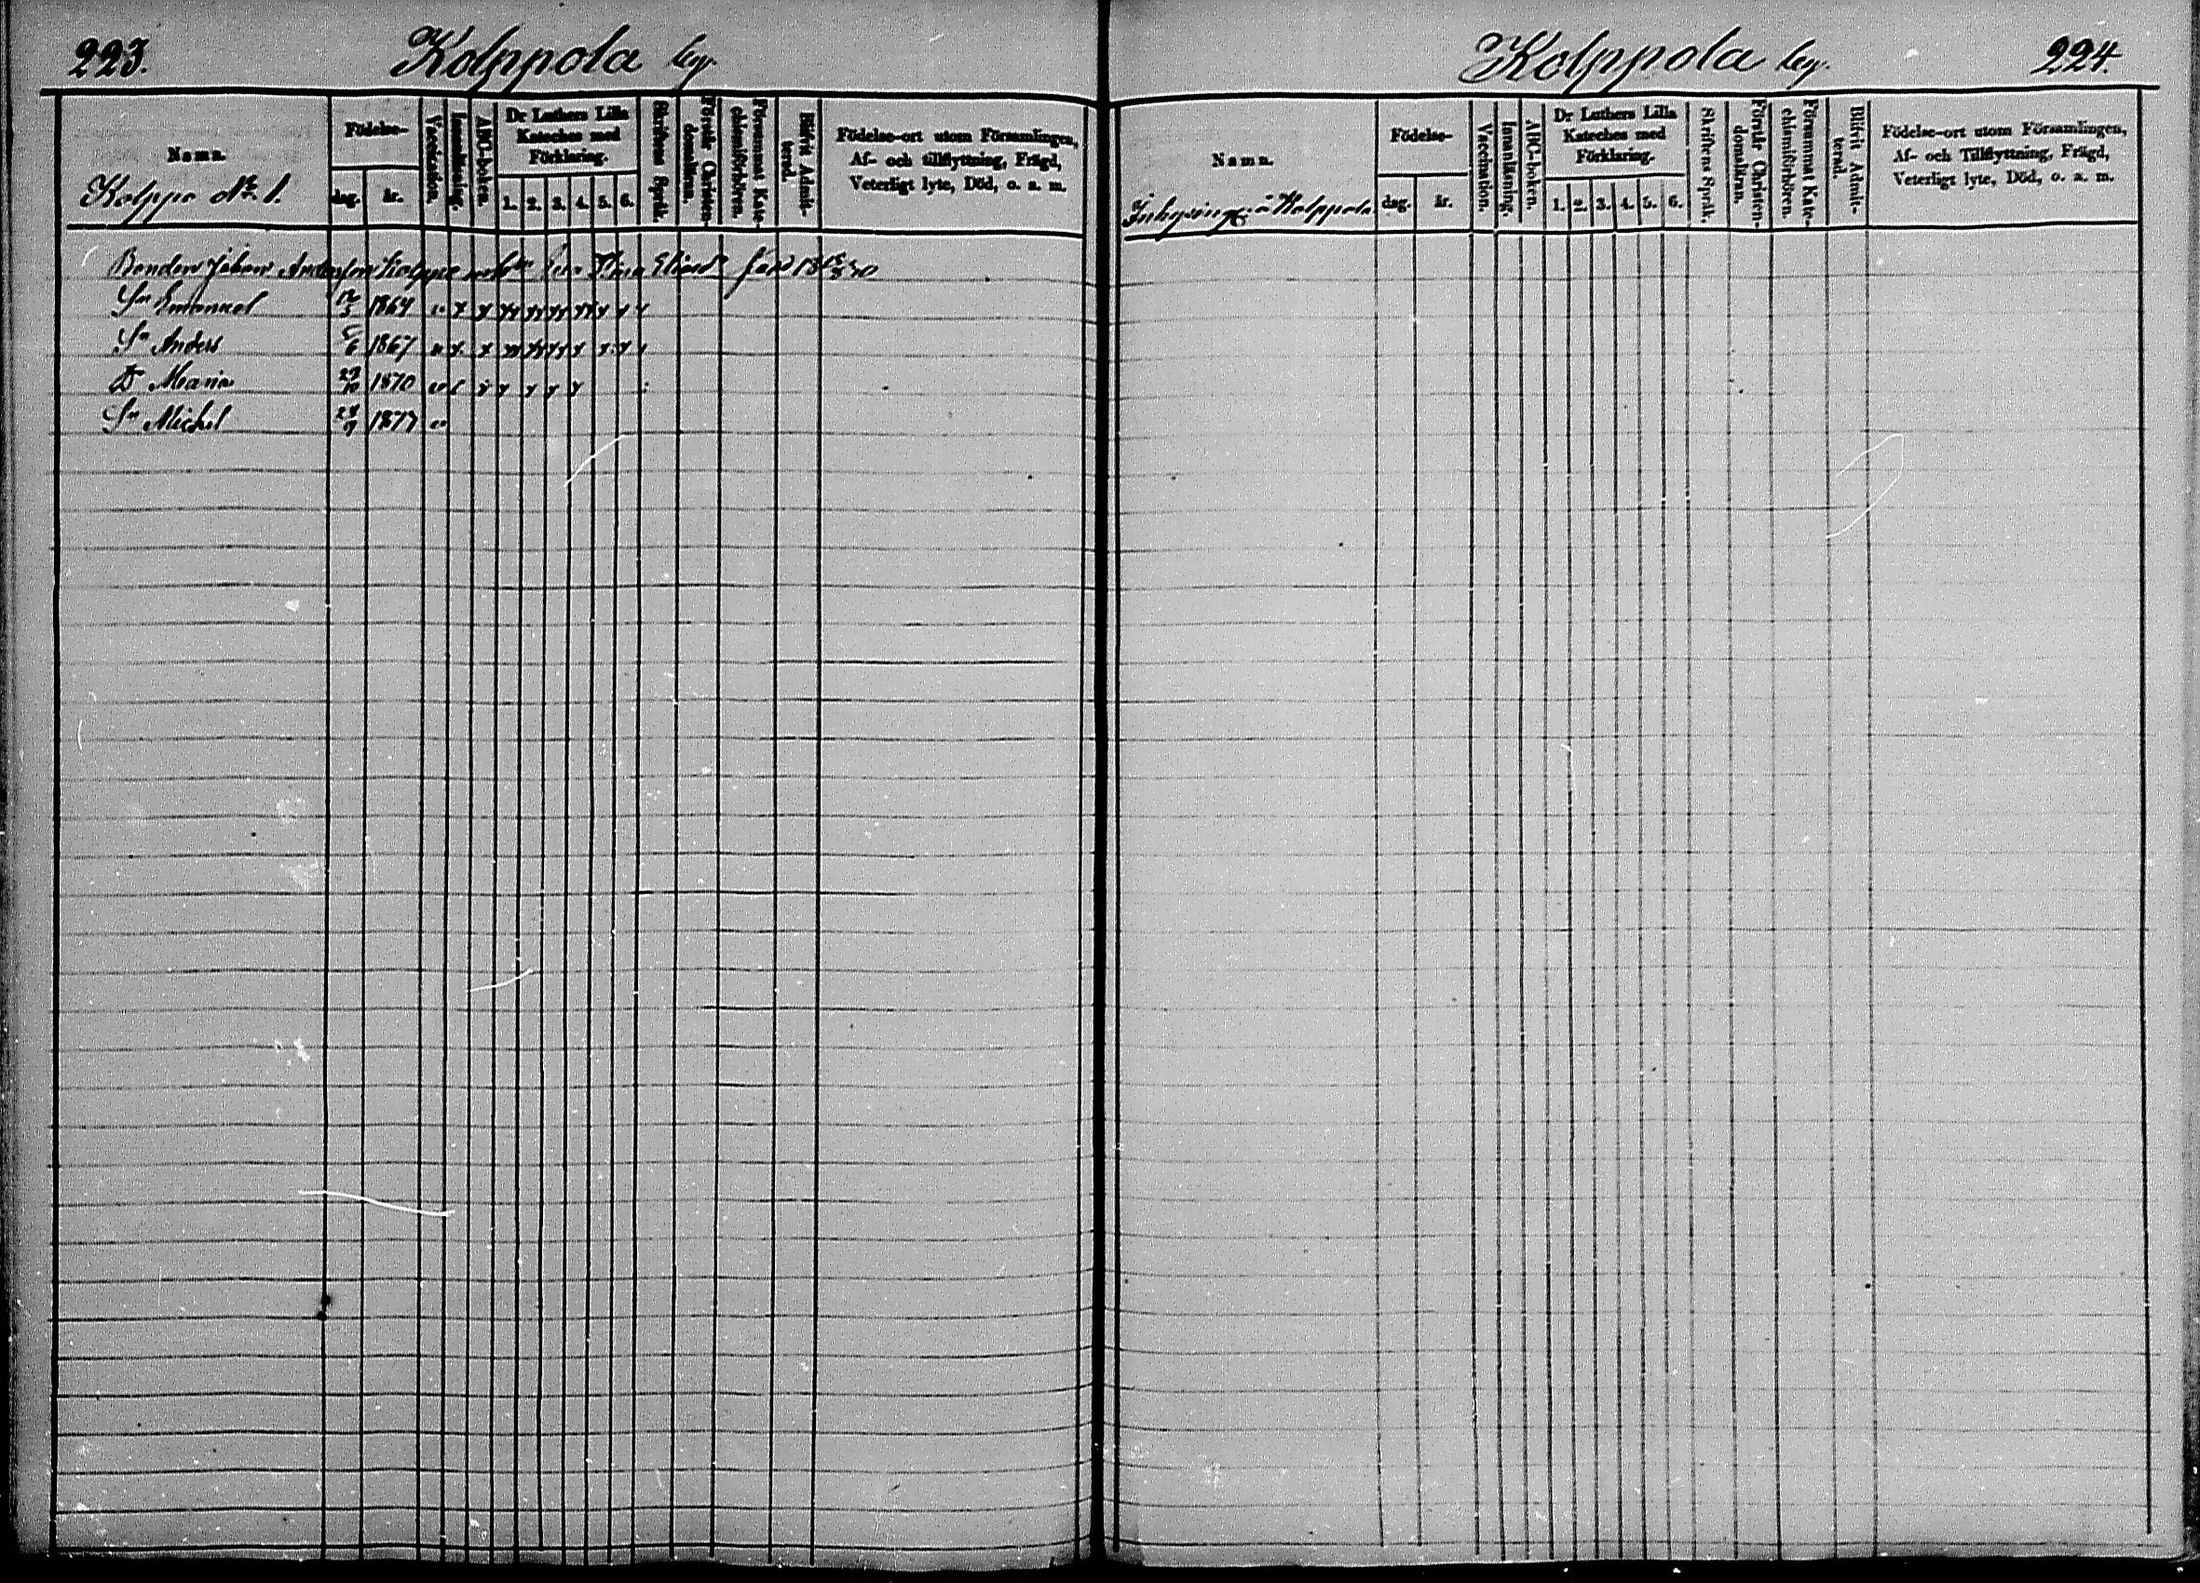 223. Kolppola by.
Namn.
Kolppo No 1.
Födelse-
dag. år.
Vaccination.
Innanläsning.
ABC-boken.
Dr Luthers Lilla
Kateches med
Förklaring.
1. 2. 3. 4. 5. 6.
Skriftens Språk.
Förstår Christen-
domsläran.
Försummat Kate-
chismiförhören.
Blifvit Admit-
terad.
Födelse-ort utom Församlingen,
Af- och tillflyttning, Frägd,
Veterligt lyte, Död, o. s. m.
Bonden Johan Andersson Kolppo och
Sn Emanuel 12/5 1864
Sn Anders 1867
Dr Maria 1870
Sn Michel 28/9 1877
Kolppola by. 224.
Namn.
Inhysing. å Kolppola
Födelse-
dag. år.
Vaccination.
Innanläsning.
ABC-boken.
Dr Luthers Lilla
Kateches med
Förklaring.
1. 2. 3. 4. 5. 6.
Skriftens Språk.
Förstår Christen-
domsläran.
Försummat Kate-
chismiförhören.
Blifvit Admit-
terad.
Födelse-ort utom Församlingen,
Af- och Tillflyttning, Frägd,
Veterligt lyte, Död, o. s. m.